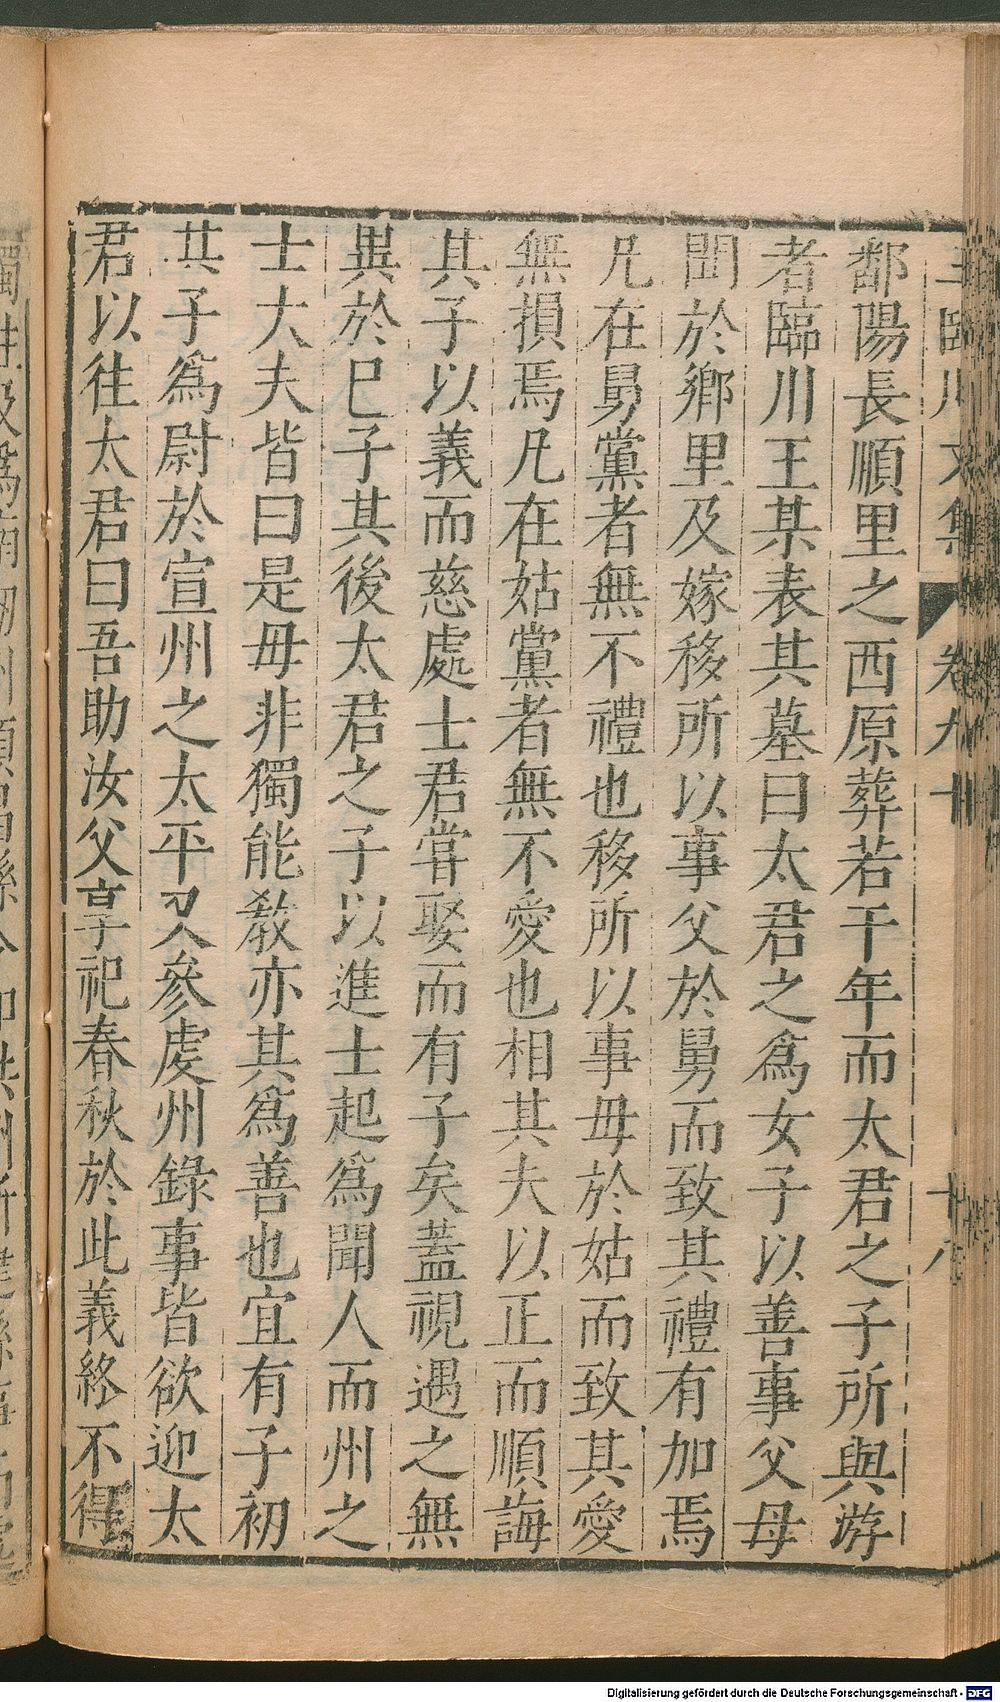 鄱陽長順里之西原葬若干年而太君之子所與游
者臨川王某表其墓曰太君之爲女子以善事父母
聞於鄉里及嫁移所以事父於舅而致其禮有加焉
凡在舅黨者無不禮也移所以事毋於姑而致其愛
無損焉凡在姑黨者無不愛也相其夫以正而順誨
其子以義而慈處士君甞娶而有子矣蓋視遇之無
異於巳子其後太君之子以進士起爲聞人而州之
士大夫皆曰是毋非獨能敎亦其爲善也宜有子初
其子爲尉於宣州之太平又參虔州錄事皆欲迎太
君以往太君曰吾助汝父享祀春秋於此義終不得
Digitalisierung gefördert durch die Deutsche Forschungsgemeinschaft - DFG